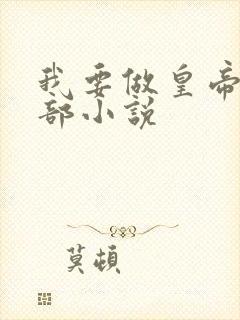 我要做皇帝
部小说
莫顿